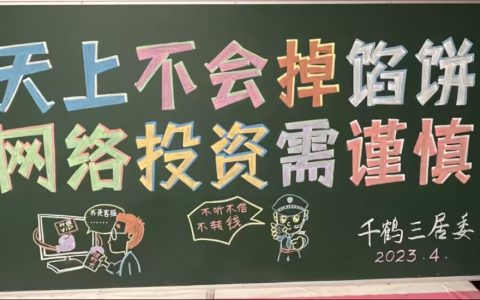 天上不会掉馅饼
网络投资需谨慎
我是客服
不听不信
不转钱
千鹤三居委
2023.4.